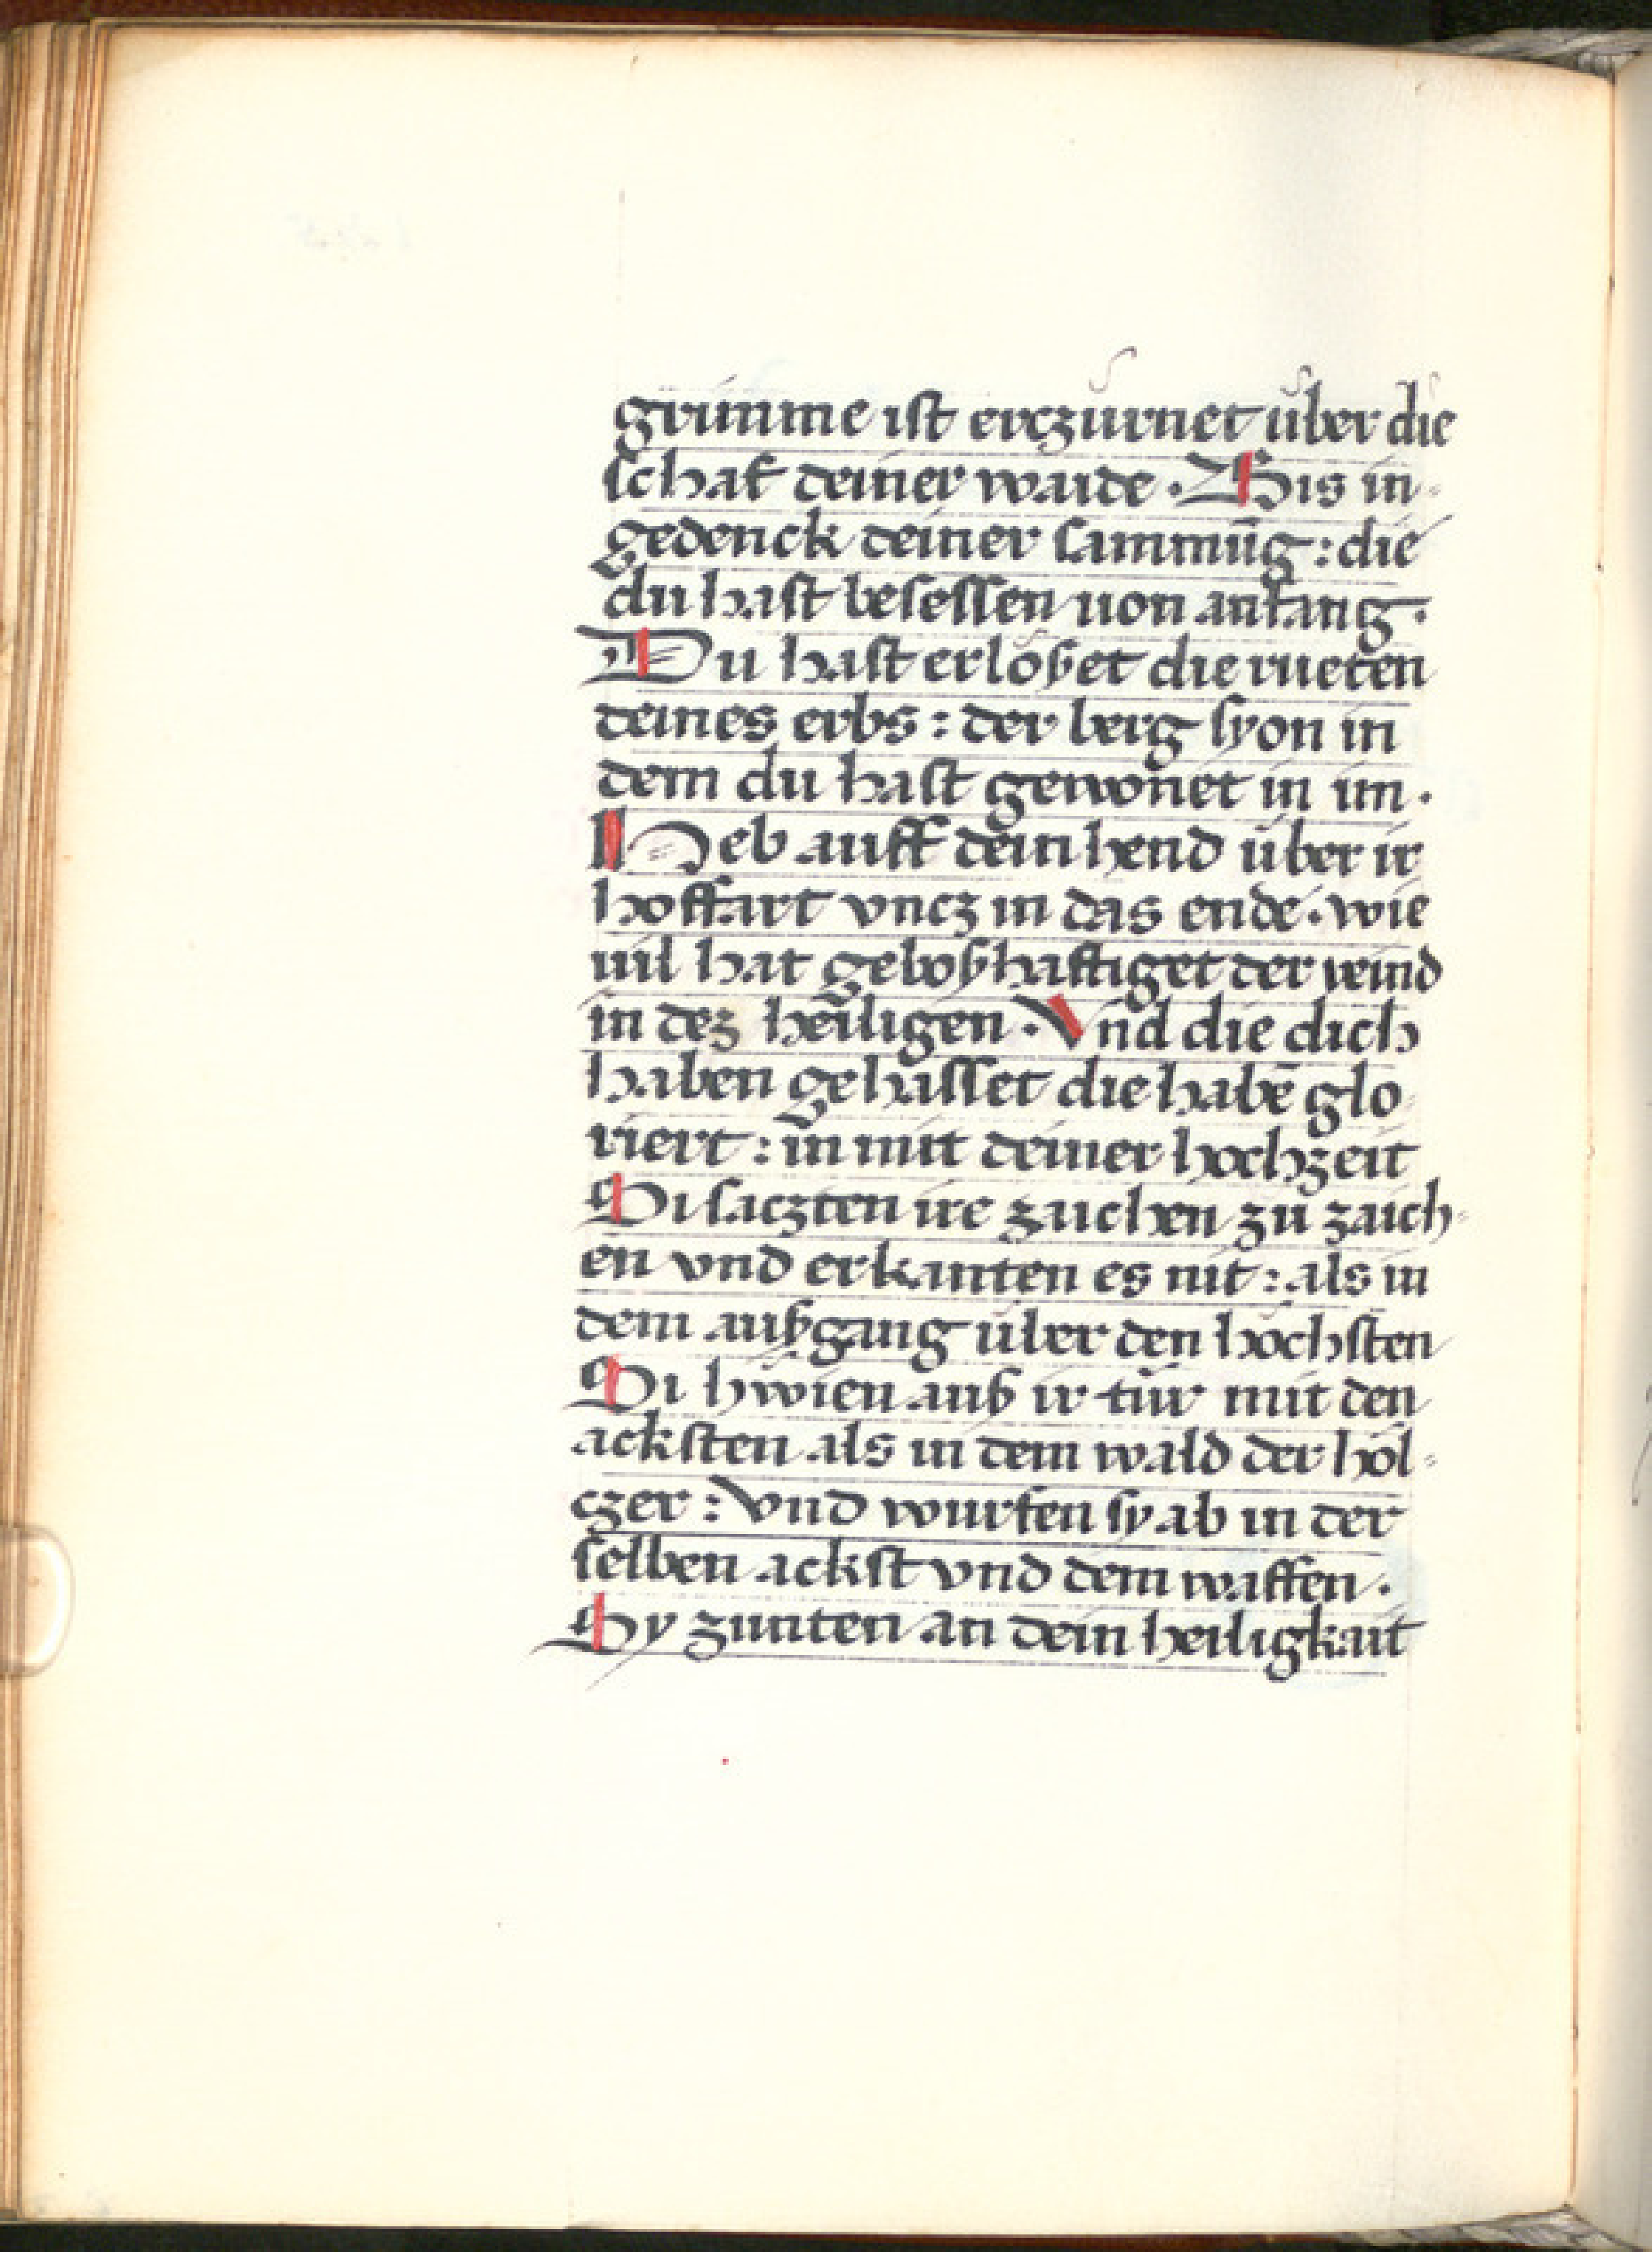 grimme ist erczürnet über die
schaf deiner waide · Bis in-
gedenck deiner sammūg : die
du hast besessen uon anfang ·
Du hast erlößet die rueten
deines erbs : der berg syon in
dem du hast gewonet in im ·
Heb auff dein hend über ir
hoffart vncz in das ende · wie
uil hat geboßhafftiget der veind
in dez heiligen · Vnd die dich
haben gehasset die habē glo-
riert : in mitt deiner hochzeit
Si saczten ire zaichen zů zaich-
en vnd erkanten es nit : als in
dem außgang über den höchsten
Si hwien auß ir tür mit den
acksten als in dem wald der höl-
czer : vnd wurfen sy ab in der
selben ackst vnd dem waffen ·
Sy zunten an dein heiligkait